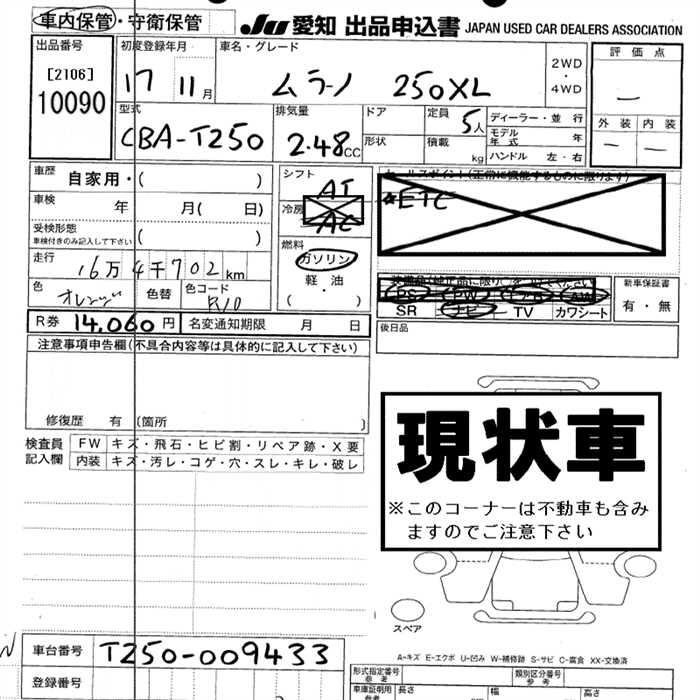 車内保管・守衛保管
JU 愛知 出品申込書 JAPAN USED CAR DEALERS ASSOCIATION
出品番号
[2106]
10090
初度登録年月
17 11月
車名・グレード
ムラーノ 250XL
2WD
・
4WD
評価点
—
外装 内装
— —
型式
CBA-T250
排気量
2.48CC
ドア
形状
定員
5人
積載
kg
ディーラー・並行
モデル年式 年
ハンドル 左・右
車歴
自家用・( )
車検
年 月( 日)
受検形態
車検付きのみ記入して下さい ( )
走行
16万4千702km
色
オレンジ
色替
色コード
R10
シフト
AT
冷房
AC
燃料
ガソリン
軽・油
( ・ )
セールスポイント(正常に機能するものに限ります)
☆ETC
装備品(純正品に限り○をつけてください)
PS PW エアB AW
SR ナビ TV カワシート
新車保証書
有・無
後日品
R券 14,060円 名変通知期限 月 日
注意事項申告欄(不具合内容等は具体的に記入して下さい)
修復歴 有 〔箇所 〕
検査員
記入欄
FW キズ・飛石・ヒビ割・リペア跡・X要
内装 キズ・汚レ・コゲ・穴・スレ・キレ・破レ
現状車
※このコーナーは不動車も含み
ますのでご注意下さい
スペア
A-キズ E-エクボ U-凹み W-補修跡 S-サビ C-腐食 XX-交換済
車台番号
T250-009433
登録番号
形式指定番号
参考
類別区分番号
参考
車庫証明用
参考
長さ 幅 高さ